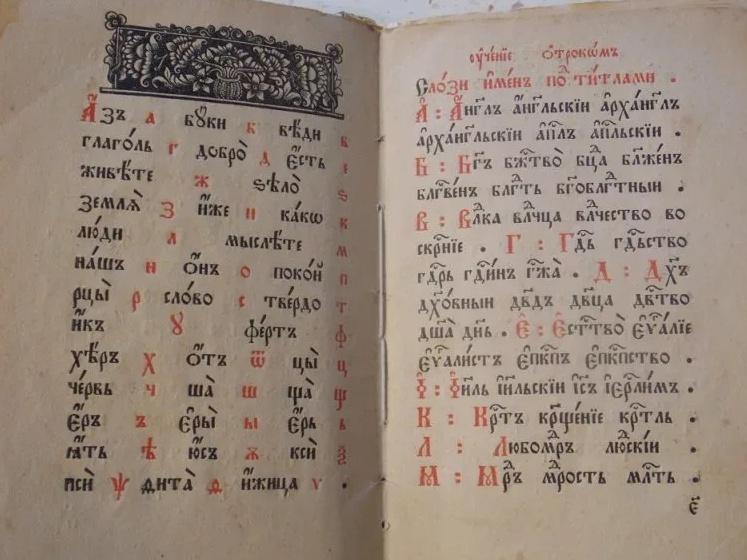 А҆́зъ а бꙋ́ки б вѣ́ди в
глаго́ль г добро̀ д є҆́сть е
живѣ́те ж ѕѣло̀ ѕ
землѧ̀ з и҆́же и ка́кѡ к
лю́ди л мыслѣ́те м
на́шъ н ѻ҆́нъ о поко́й п
рцы̀ р сло́во с тве́рдо т
и҆́къ ꙋ фе́ртъ ф
хѣ́ръ х ѿ́тъ ѿ цы̀ ц
че́рвь ч ша̀ ш ща̀ щ
є҆́ръ ъ є҆ры̀ ы є҆́рь ь
ꙗ҆́ть ѣ ю҆́съ ѫ ксѝ ѯ
псѝ ѱ ѳита̀ ѳ и҆́жица ѵ .
оу҆че́нїе ѻ҆трокѡ́мъ
Сло́зи и҆ме́нъ по́д̾ ти́тлами .
А҆҃ : А҆́гг҃лъ а҆́гг҃льскїи а҆рха́гг҃лъ
а҆рха́гг҃льскїи а҆пⷭ҇лъ а҆пⷭ҇льскїи .
Б : Бг҃ъ бж҃тво̀ бц҃а бл҃же́нъ
блгⷭ҇ве́нъ блгⷣть бг҃облгⷣтный .
В : Влⷣка влⷣчца влⷣчество во
скрⷭ҇нїе . Г : Гдⷭ҇ь гдⷭ҇ьство
гдⷭ҇рь гдⷭ҇и́нъ гжⷭ҇а̀ . Д : Дх҃ъ
дх҃о́вныи дв҃дъ дв҃ца дв҃тво
дш҃а̀ дн҃ь . Є҆ : Є҆стⷭ҇тво̀ є҆ѵⷢ҇лїе
є҆ѵⷢ҇листъ є҆пⷭ҇кпъ є҆пⷭ҇кпство .
І҆ : І҆и҃ль і҆и҃льскїи і҆с҃ъ і҆ерⷭ҇ли́мъ .
К : Крⷭ҇тъ крⷭ҇ще́нїе крⷭ҇тль .
Л : Любомⷣръ людⷭ҇кїи .
М : Мⷣръ мⷣрость млⷭ҇ть .
є҃